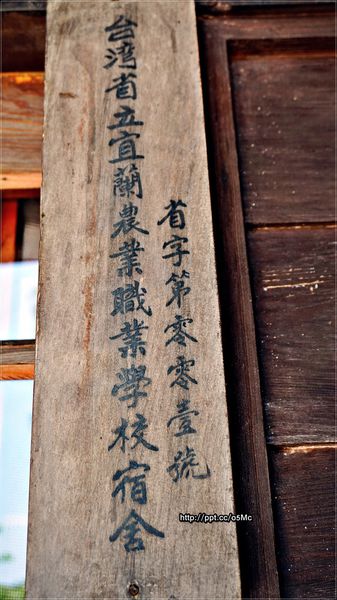 台湾省立宜蘭農業職業學校宿舍
省字第零零壹號
http://ppt.cc/o5Mc